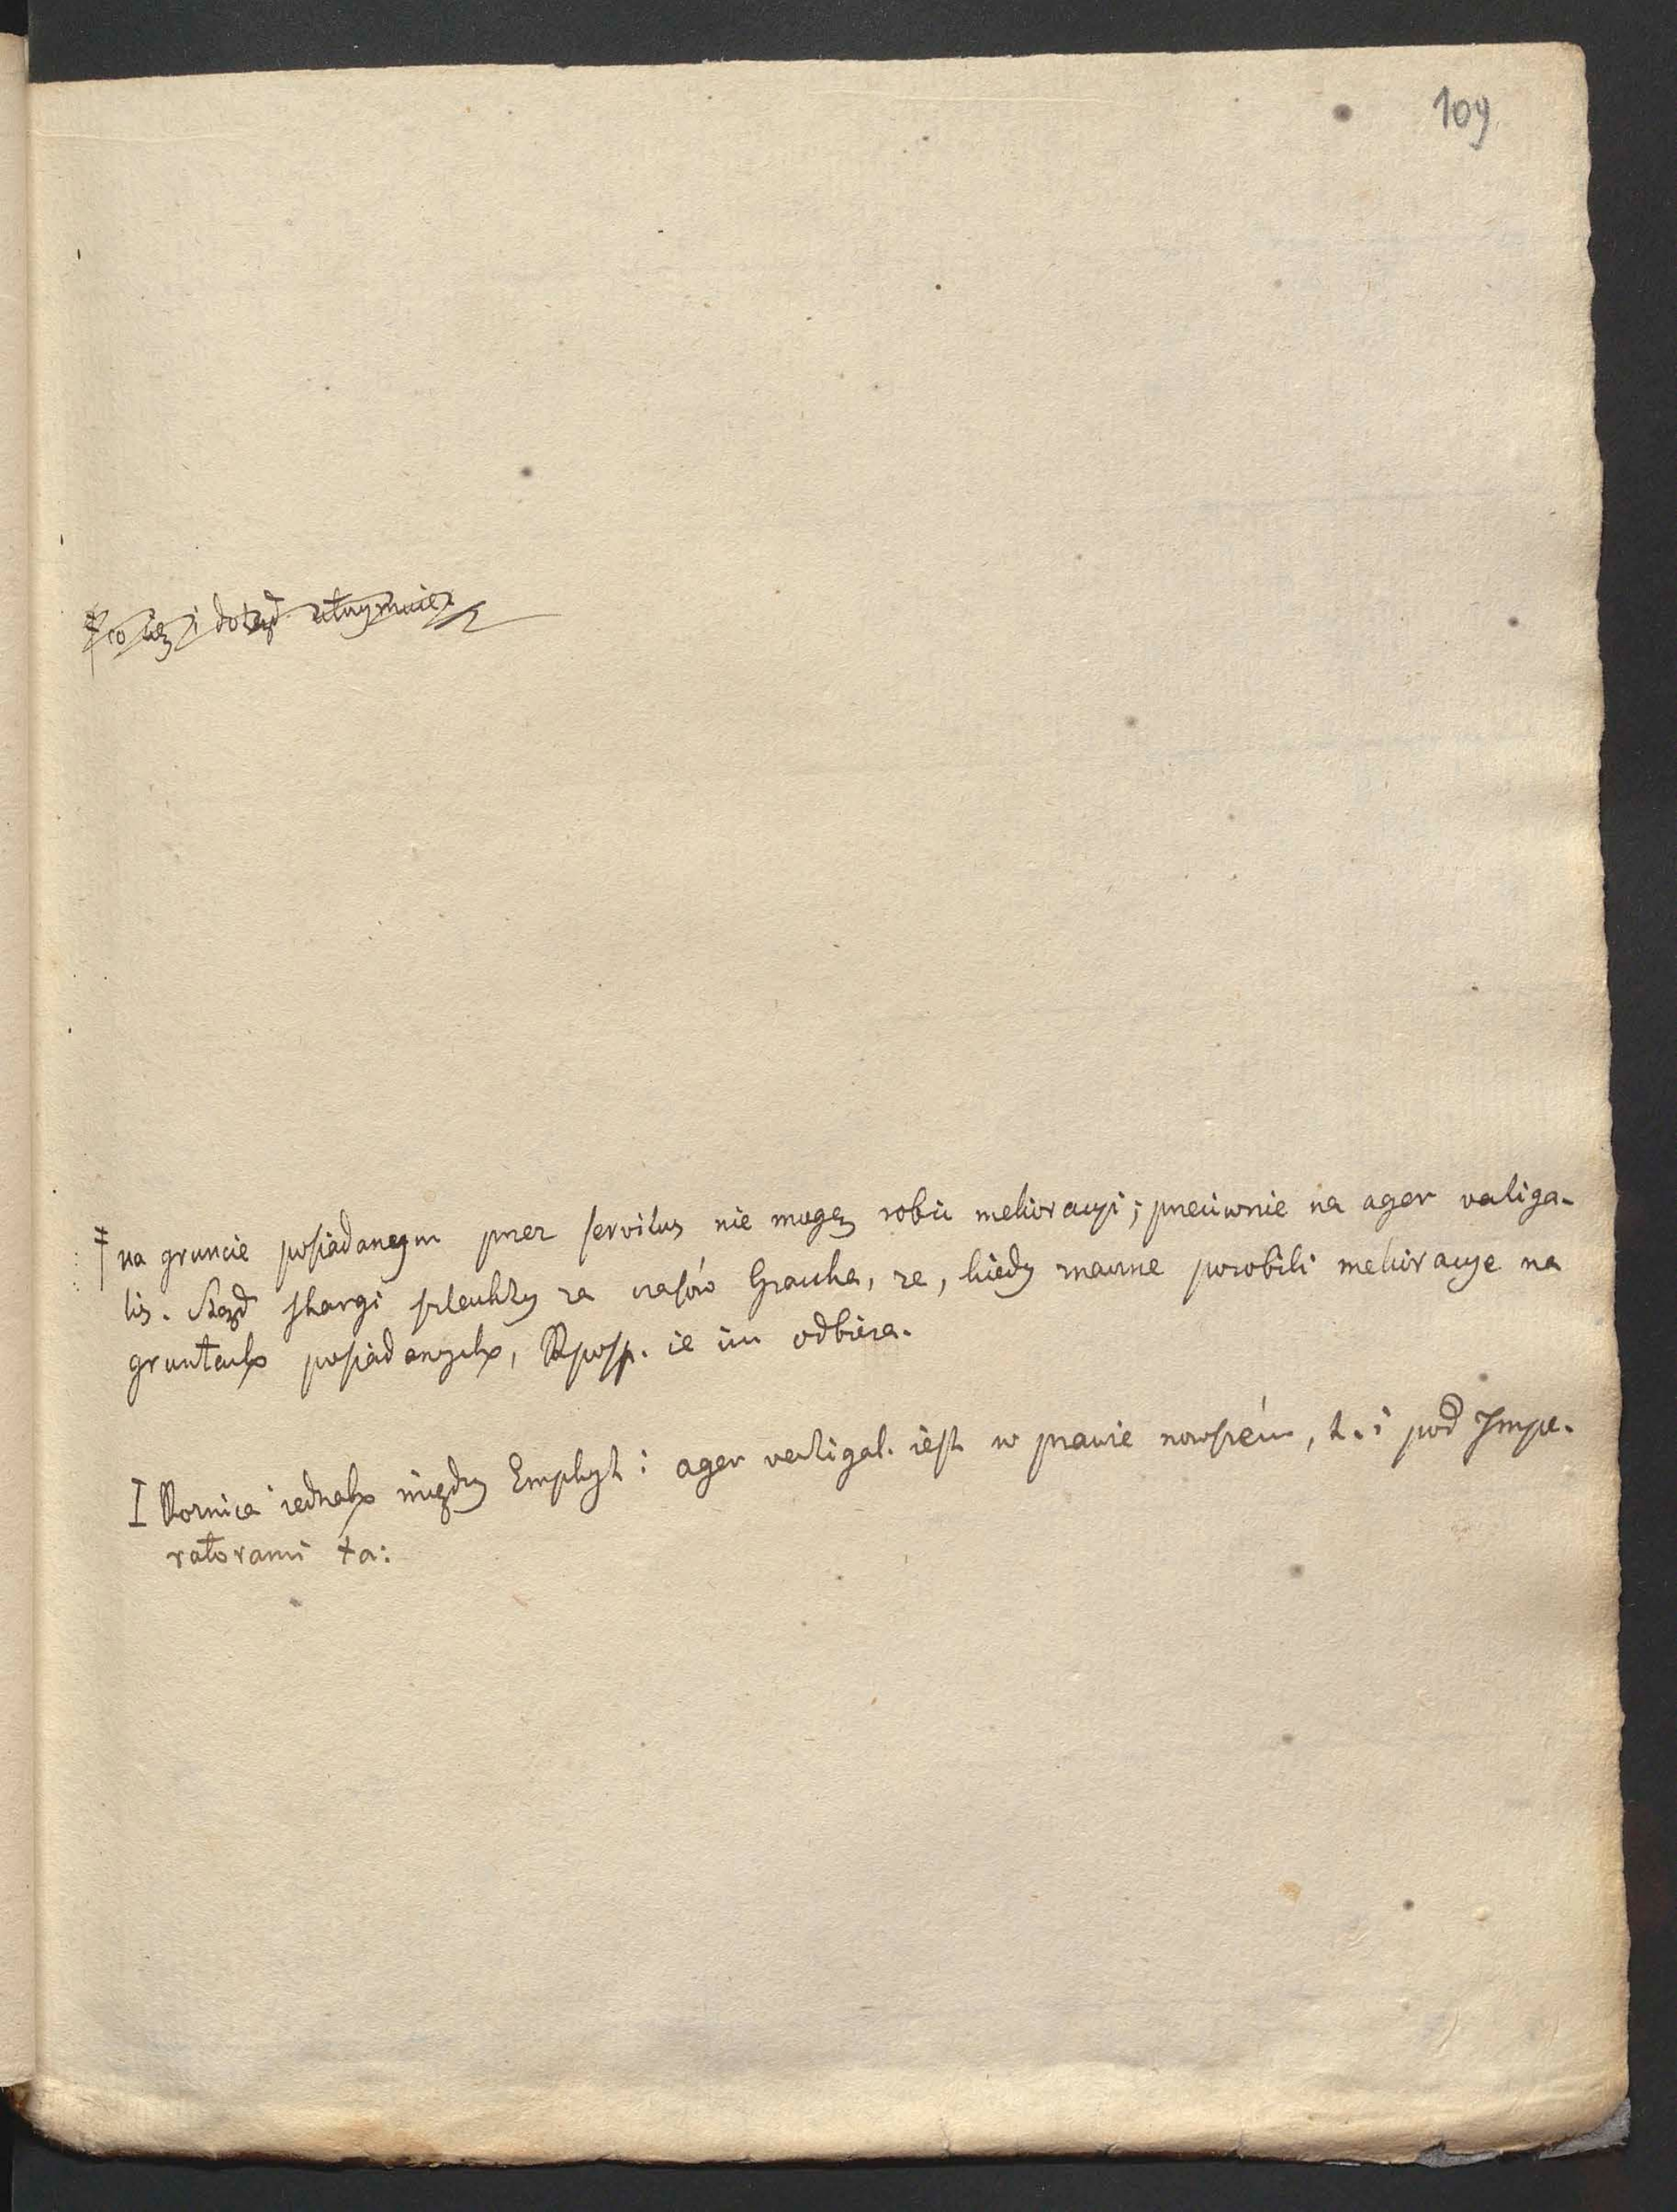 109
‡ co się i dotąd utrzymuie.
‡ na gruncie posiadanym przez servitus nie mogę robić melioracyi; przeciwnie na ager vectiga-
lis. Skąd skargi szlachty za czasów Graccha, że, kiedy znaczne porobili melioracye na
gruntach posiadanych, Rposp. ie im odbiera.
I Rożnica iednak między Emphyt: ager vectigal. iest w prawie nowszém, t. i pod Impe-
ratorami ta: